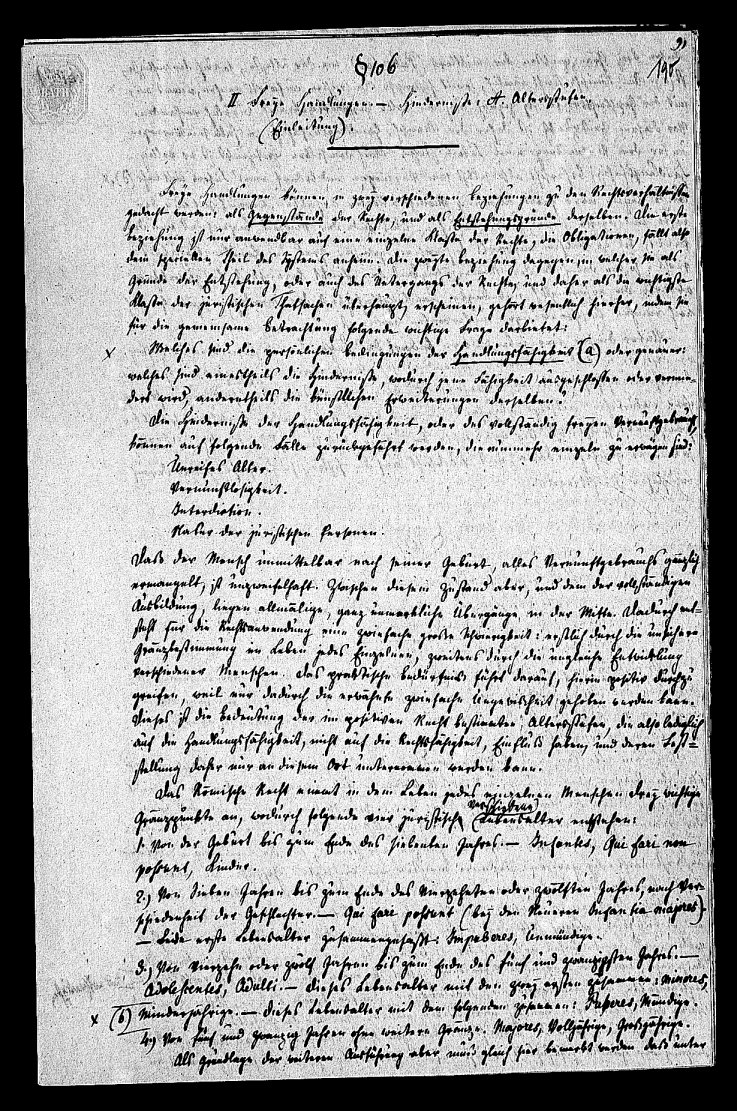 195
§106
II Freye Handlungen. — Hindernisse: A. Altersstufen
(Einleitung).
Freye Handlungen können in zwey verschiedenen Beziehungen zu den Rechtsverhältnissen
gedacht werden: als Gegenstände der Rechte, und als Entstehungsgründe derselben. Die erste
Beziehung ist nur anwendbar auf eine einzelne Klasse der Rechte, die Obligationen, fällt also
dem speciellen Theil des Systems anheim. Die zweyte Beziehung dagegen, in welcher sie als
Gründe der Entstehung, oder auch des Untergangs der Rechte, und daher als die wichtigste
Klasse der juristischen Thatsachen überhaupt, erscheinen, gehört wesentlich hierher, indem sie
für die gemeinsame Betrachtung folgende wichtige Frage darbietet:
x Welches sind die persönlichen Bedingungen der Handlungsfähigkeit (a) oder genauer:
welches sind einestheils die Hindernisse, wodurch jene Fähigkeit ausgeschlossen oder vermin-
dert wird, anderntheils die künstlichen Erweiterungen derselben?
Die Hindernisse der Handlungsfähigkeit, oder des vollständig freyen Vernunftgebrauchs,
können auf folgende Fälle zurückgeführt werden, die nunmehr einzeln zu erwägen sind:
Unreifes Alter.
Vernunftlosigkeit.
Interdiction.
Natur der juristischen Personen.
Daß der Mensch unmittelbar nach seiner Geburt, alles Vernunftgebrauchs gänzlich
ermangelt, ist unzweifelhaft. Zwischen diesem Zustand aber, und dem der vollständigen
Ausbildung, liegen allmälige, ganz unmerkliche Übergänge in der Mitte. Dadurch ent-
steht für die Rechtsanwendung eine zwiefache große Schwierigkeit: erstlich durch die unsichere
Gränzbestimmung im Leben jedes Einzelnen, zweitens durch die ungleiche Entwicklung
verschiedener Menschen. Das praktische Bedürfniß führt darauf, hierin positiv durchzu
greifen, weil nur dadurch die erwähnte zwiefache Ungewißheit gehoben werden kann.
Dieses ist die Bedeutung der im positiven Recht bestimmten Altersstufen, die also lediglich
auf die Handlungsfähigkeit, nicht auf die Rechtsfähigkeit, Einfluß haben, und deren Fest-
stellung daher nur an diesem Ort unternommen werden kann.
Das Römische Recht nimmt in dem Leben jedes einzelnen Menschen drey wichtige
Gränzpunkte an, wodurch folgende vier juristisch verschiedene Lebensalter entstehen:
1. Von der Geburt bis zum Ende des siebenten Jahres. — Infantes, Qui fari non
possunt, Kinder.
2.) Von Sieben Jahren bis zum Ende des Vierzehnten oder zwölften Jahres, nach Ver-
schiedenheit der Geschlechter. — Qui fari possunt (bey den Neueren Infantia majores).
— Beide erste Lebensalter zusammengefaßt: Impuberes, Unmündige.
3.) Von Vierzehn oder zwölf Jahren bis zum Ende des fünf und zwanzigsten Jahres. —
Adolescentes, Adulti. — Dieses Lebensalter mit den zwey ersten zusammen: Minores,
x (b) Minderjährige. — Dieses Lebensalter mit dem folgenden zusammen: Puberes, Mündige.
4.) Von fünf und zwanzig Jahren ohne weitere Gränze. Majores, Volljährige, Großjährige.
Als Grundlage der weiteren Ausführung aber muß gleich hier bemerkt werden daß unter